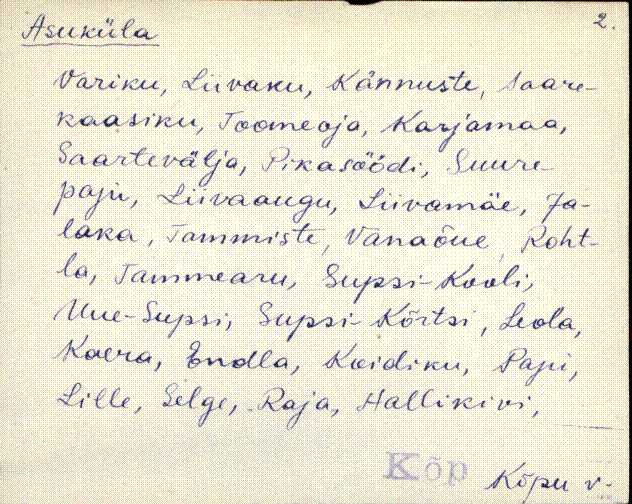 Asuküla 2.
Variku, Liivaku, Kännuste, Saare-
kaasiku, Toomeoja, Karjamaa,
Saartevälja, Pikasöödi, Suure-
paju, Liivaaugu, Liivamäe, Ja-
laka, Tammiste, Vanaõue, Roht-
la, Tammearu, Supsi-Kooli,
Uue-Supsi, Supsi-Kõrtsi, Leola,
Kaera, Endla, Koidiku, Papi,
Lille, Selge, Raja, Hallikivi,
Kõp Kõpu v.